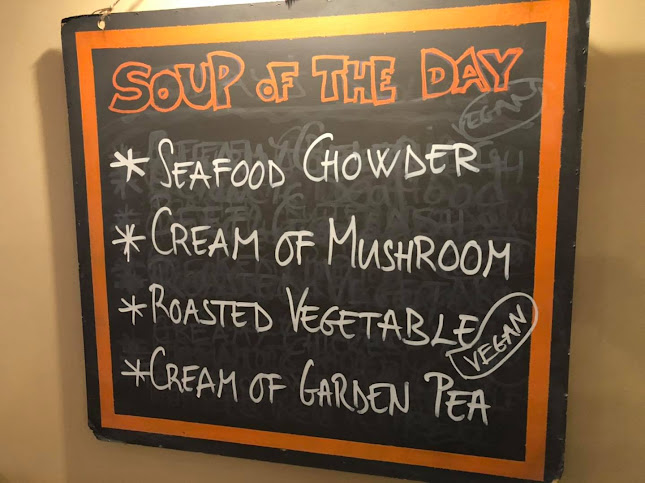 SOUP OF THE DAY
VEGAN
* SEAFOOD CHOWDER
* CREAM OF MUSHROOM
* ROASTED VEGETABLE
VEGAN
* CREAM OF GARDEN PEA